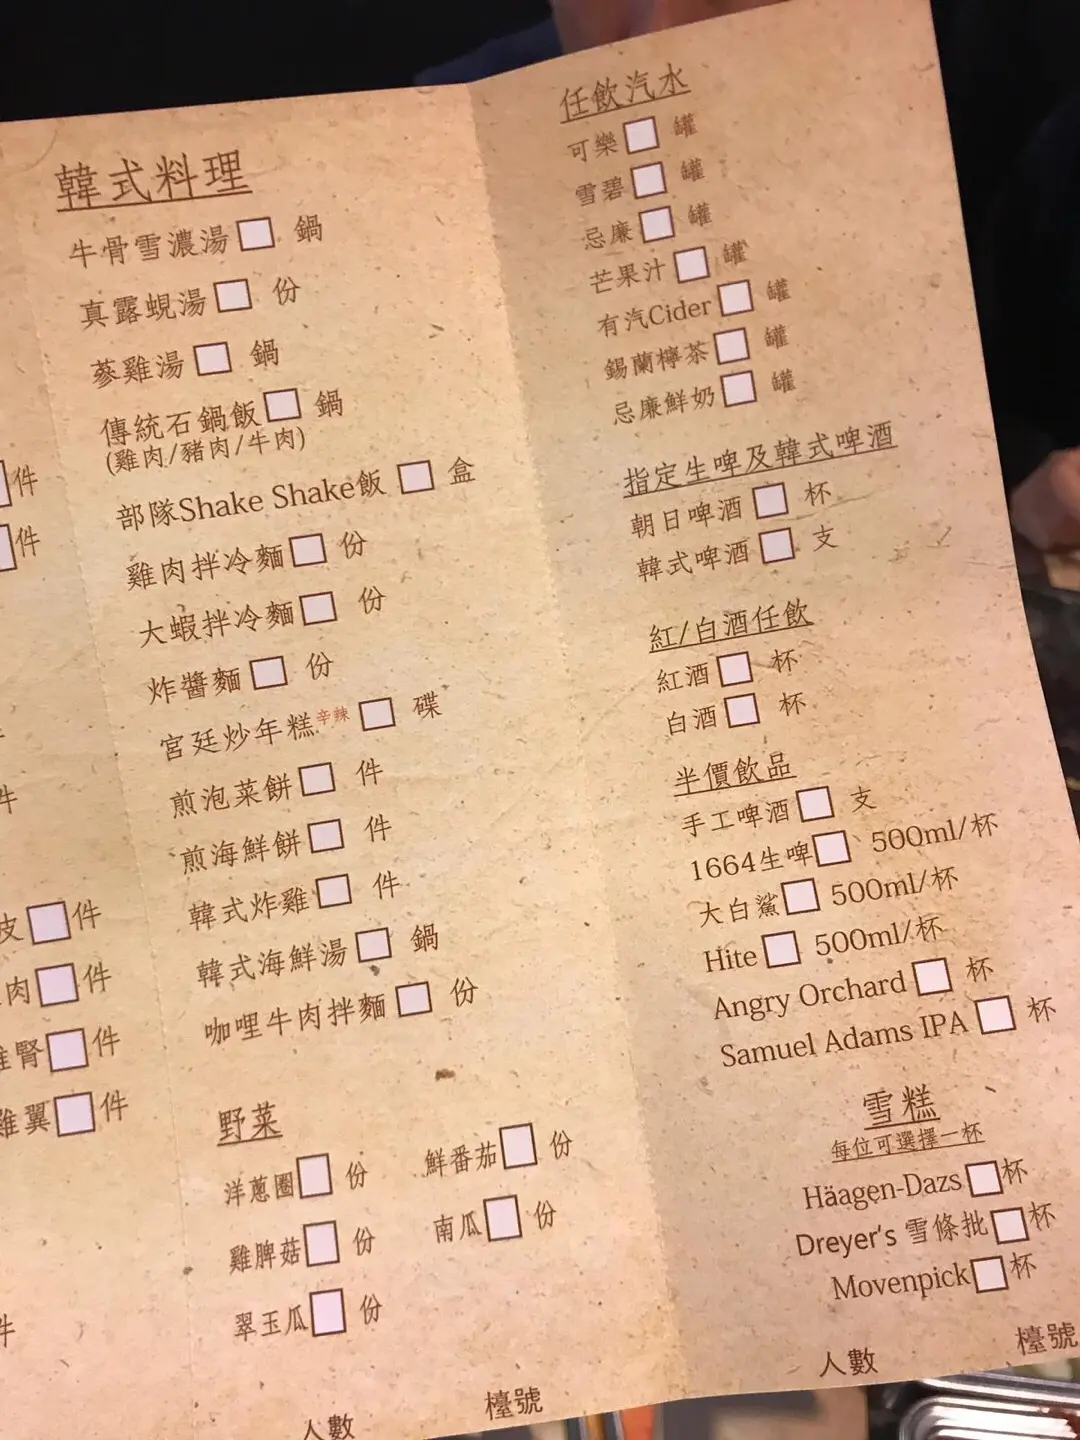 件
件
件
皮 件
肉 件
雞腎 件
雞翼 件
件
韓式料理
牛骨雪濃湯 鍋
真露蜆湯 份
蔘雞湯 鍋
傳統石鍋飯 鍋
(雞肉/豬肉/牛肉)
部隊Shake Shake飯 盒
雞肉拌冷麵 份
大蝦拌冷麵 份
炸醬麵 份
宮廷炒年糕辛辣 碟
煎泡菜餅 件
煎海鮮餅 件
韓式炸雞 件
韓式海鮮湯 鍋
咖哩牛肉拌麵 份
野菜
洋蔥圈 份 鮮番茄 份
雞脾菇 份 南瓜 份
翠玉瓜 份
人數 檯號
任飲汽水
可樂 罐
雪碧 罐
忌廉 罐
芒果汁 罐
有汽Cider 罐
錫蘭檸茶 罐
忌廉鮮奶 罐
指定生啤及韓式啤酒
朝日啤酒 杯
韓式啤酒 支
紅/白酒任飲
紅酒 杯
白酒 杯
半價飲品
手工啤酒 支
1664生啤 500ml/杯
大白鯊 500ml/杯
Hite 500ml/杯
Angry Orchard 杯
Samuel Adams IPA 杯
雪糕
每位可選擇一杯
Häagen-Dazs 杯
Dreyer's 雪條批 杯
Movenpick 杯
人數 檯號